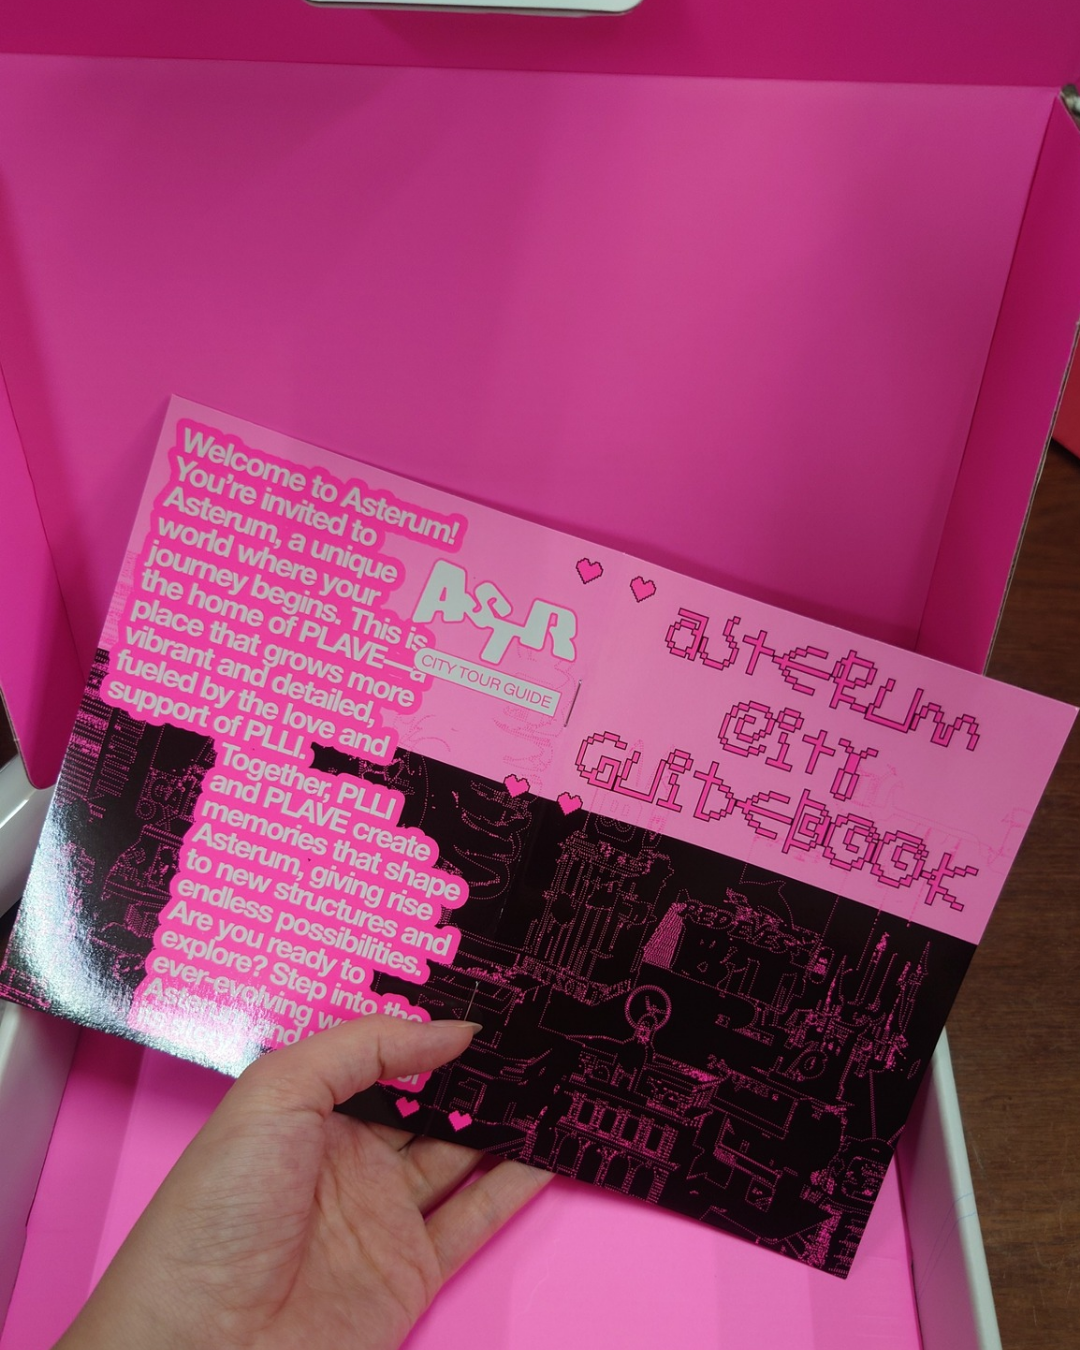 Welcome to Asterum!
You're invited to
Asterum, a unique
world where your
journey begins. This is
the home of PLAVE—a
place that grows more
vibrant and detailed,
fueled by the love and
support of PLLI.
Together, PLLI
and PLAVE create
memories that shape
Asterum, giving rise
to new structures and
endless possibilities.
Are you ready to
explore? Step into the
ever-evolving
and
ASTR
CITY TOUR GUIDE
asterum
city
Guidebook
RED EYES